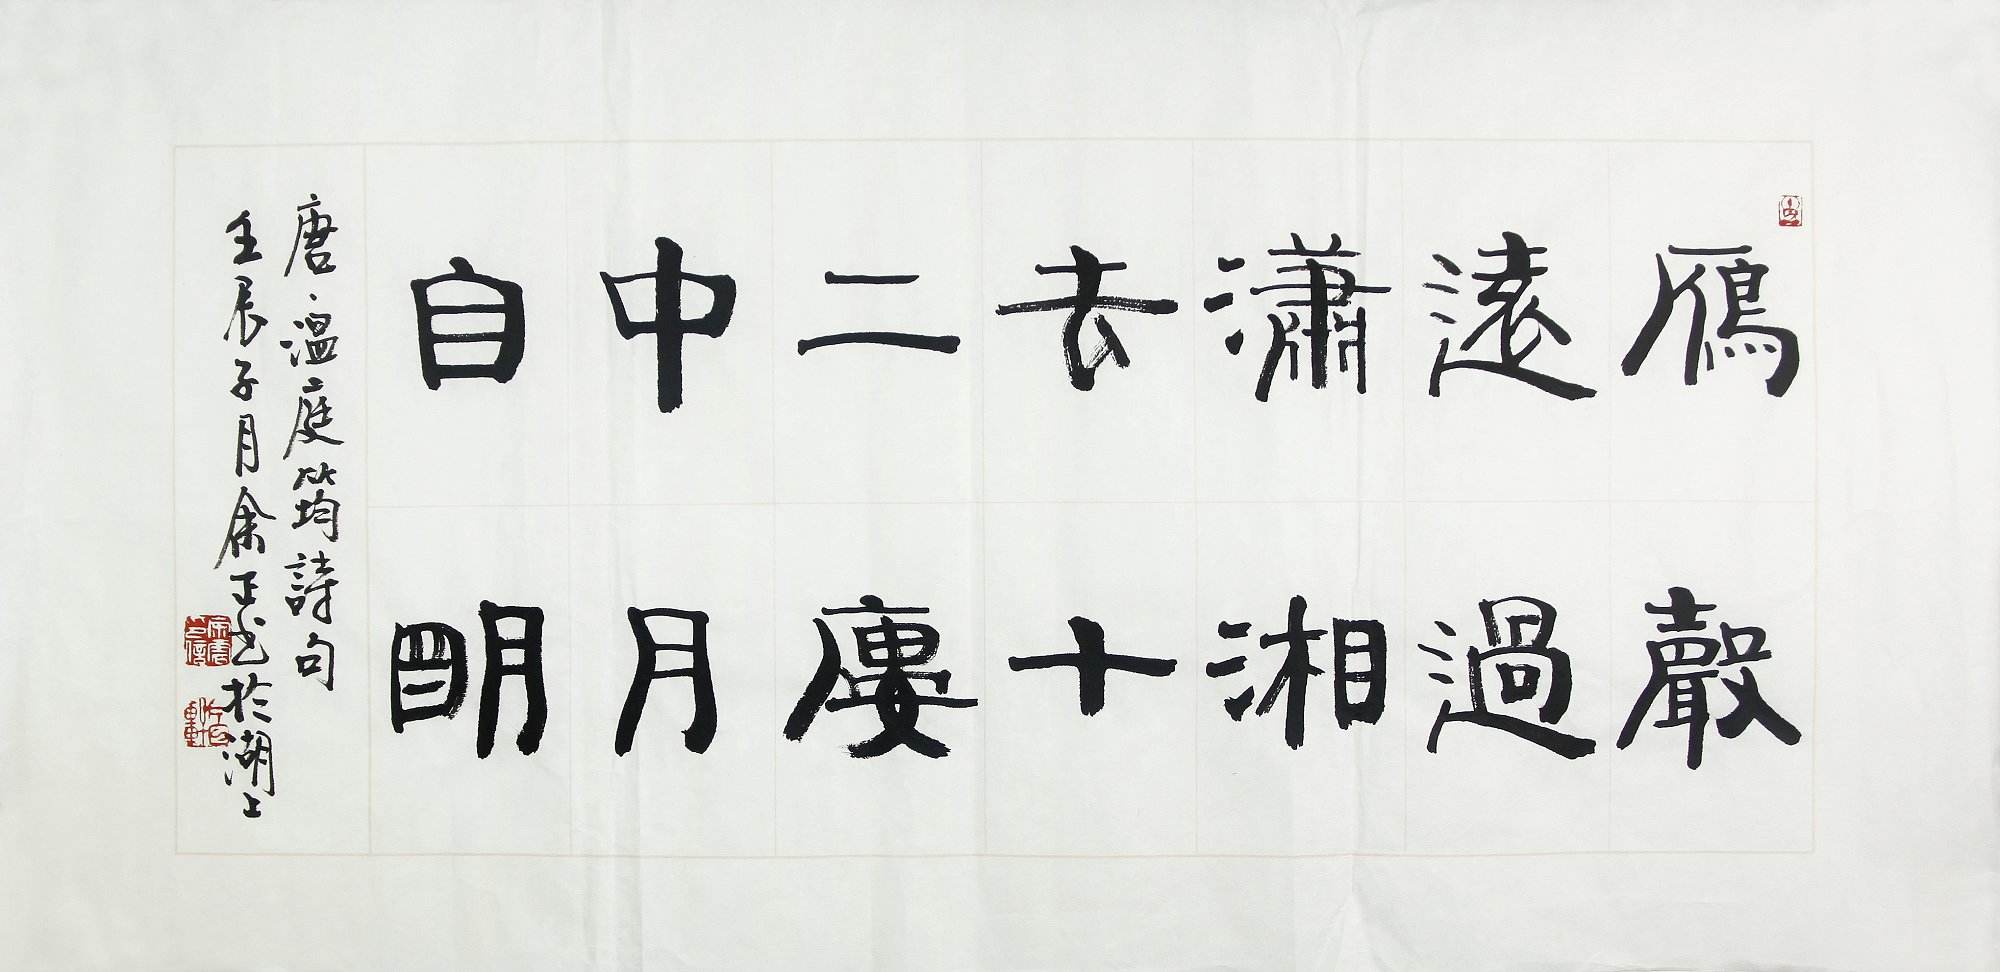 雁聲
遠過
瀟湘
去十
二廔
中月
自朙
唐·溫庭筠詩句
壬辰子月余正书於湖上